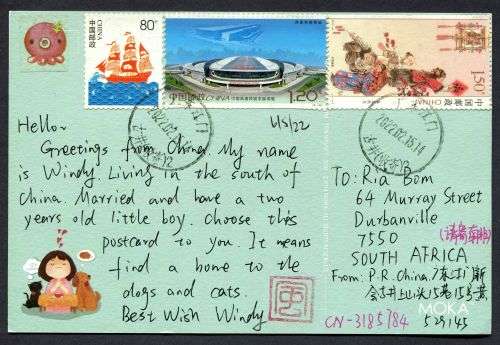 80分
中国邮政
CHINA
中国邮政 CHINA
1.20元
1.50元
中国邮政 CHINA
2022.02.15.14
2022.02.15.14
江门
Hello,
Greetings from China. My name
is Windy. Living in the south of
China. Married and have a two
years old little boy. Choose this
postcard to you. It means
find a home to the
dogs and cats.
Best Wish Windy
TO: Ria Bom
64 Murray Street
Durbanville
7550
SOUTH AFRICA
From: P.R.China.
CN-3185784
529145
MOKA